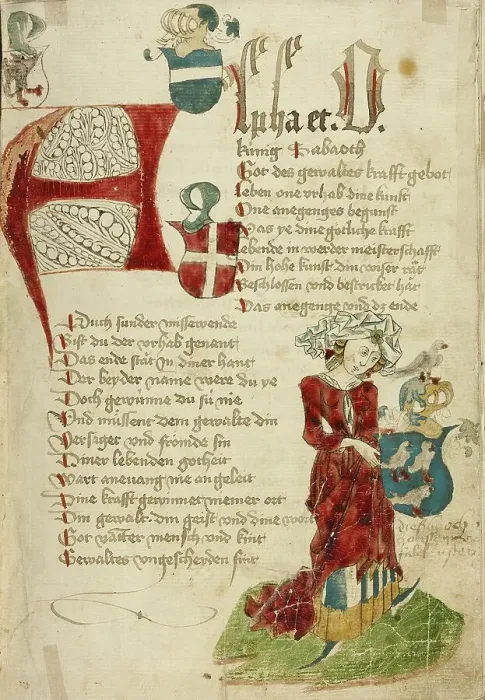 Alpha et O.
künig Sabaoth
Got des gewaltes krafft gebot
Leben one vrhab dine kunst
One anegenges begunst
Was ye dine götliche krafft
Lebende in werder meisterschafft
Din hohe kunst din wiser rät
Beslossen vnd bestricket hät
Das anegenge vnd dz ende
Duch sunder missewende
Bist du der vrhab genant
Das ende stät in diner hant
Der beyder name were du ye
Doch gewunne du sü nie
Vnd müssent dem gewalte din
Versaget vnd frömde sin
Diner lebenden gotheit
Wart anevang nie an geleit
Dine krafft gewinnet niemer ort
Din gewalt din geist vnd dine wort
Got vatter mensch vnd kint
Gewaltes vngescheyden sint